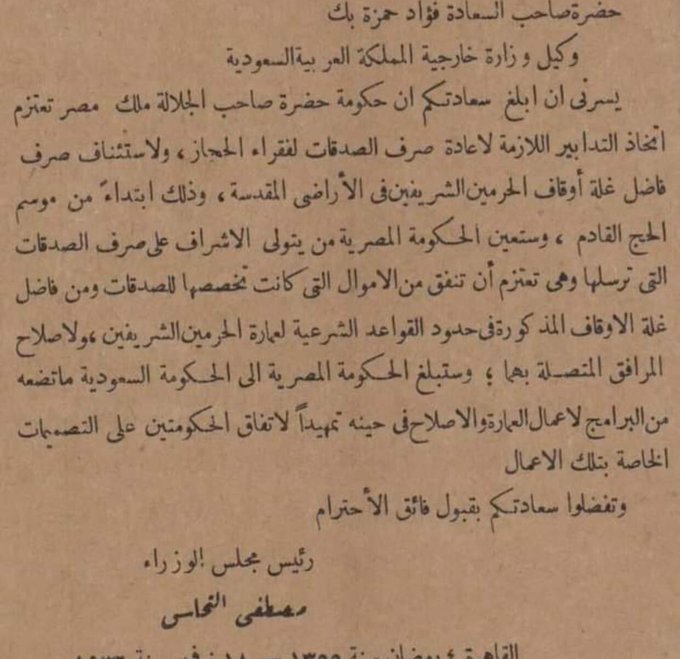 حضرة صاحب السعادة فؤاد حمزة بك
وكيل وزارة خارجية المملكة العربية السعودية
يسرنى ان ابلغ سعادتكم ان حكومة حضرة صاحب الجلالة ملك مصر تعتزم
اتخاذ التدابير اللازمة لاعادة صرف الصدقات لفقراء الحجاز ، ولاستئناف صرف
فاضل غلة أوقاف الحرمين الشريفين فى الأراضى المقدسة ، وذلك ابتداءً من موسم
الحج القادم ، وستعين الحكومة المصرية من يتولى الاشراف على صرف الصدقات
التى ترسلها وهى تعتزم أن تنفق من الاموال التى كانت تخصصها للصدقات ومن فاضل
غلة الاوقاف المذكورة فى حدود القواعد الشرعية لعمارة الحرمين الشريفين ، ولاصلاح
المرافق المتصلة بهما ؛ وستبلغ الحكومة المصرية الى الحكومة السعودية ماتضعه
من البرامج لاعمال العمارة والاصلاح فى حينه تمهيداً لاتفاق الحكومتين على التصميمات
الخاصة بتلك الاعمال
وتفضلوا سعادتكم بقبول فائق الأحترام
رئيس مجلس الوزراء
مصطفى النحاس
القاهرة ٤ رمضان سنة ١٣٥٥